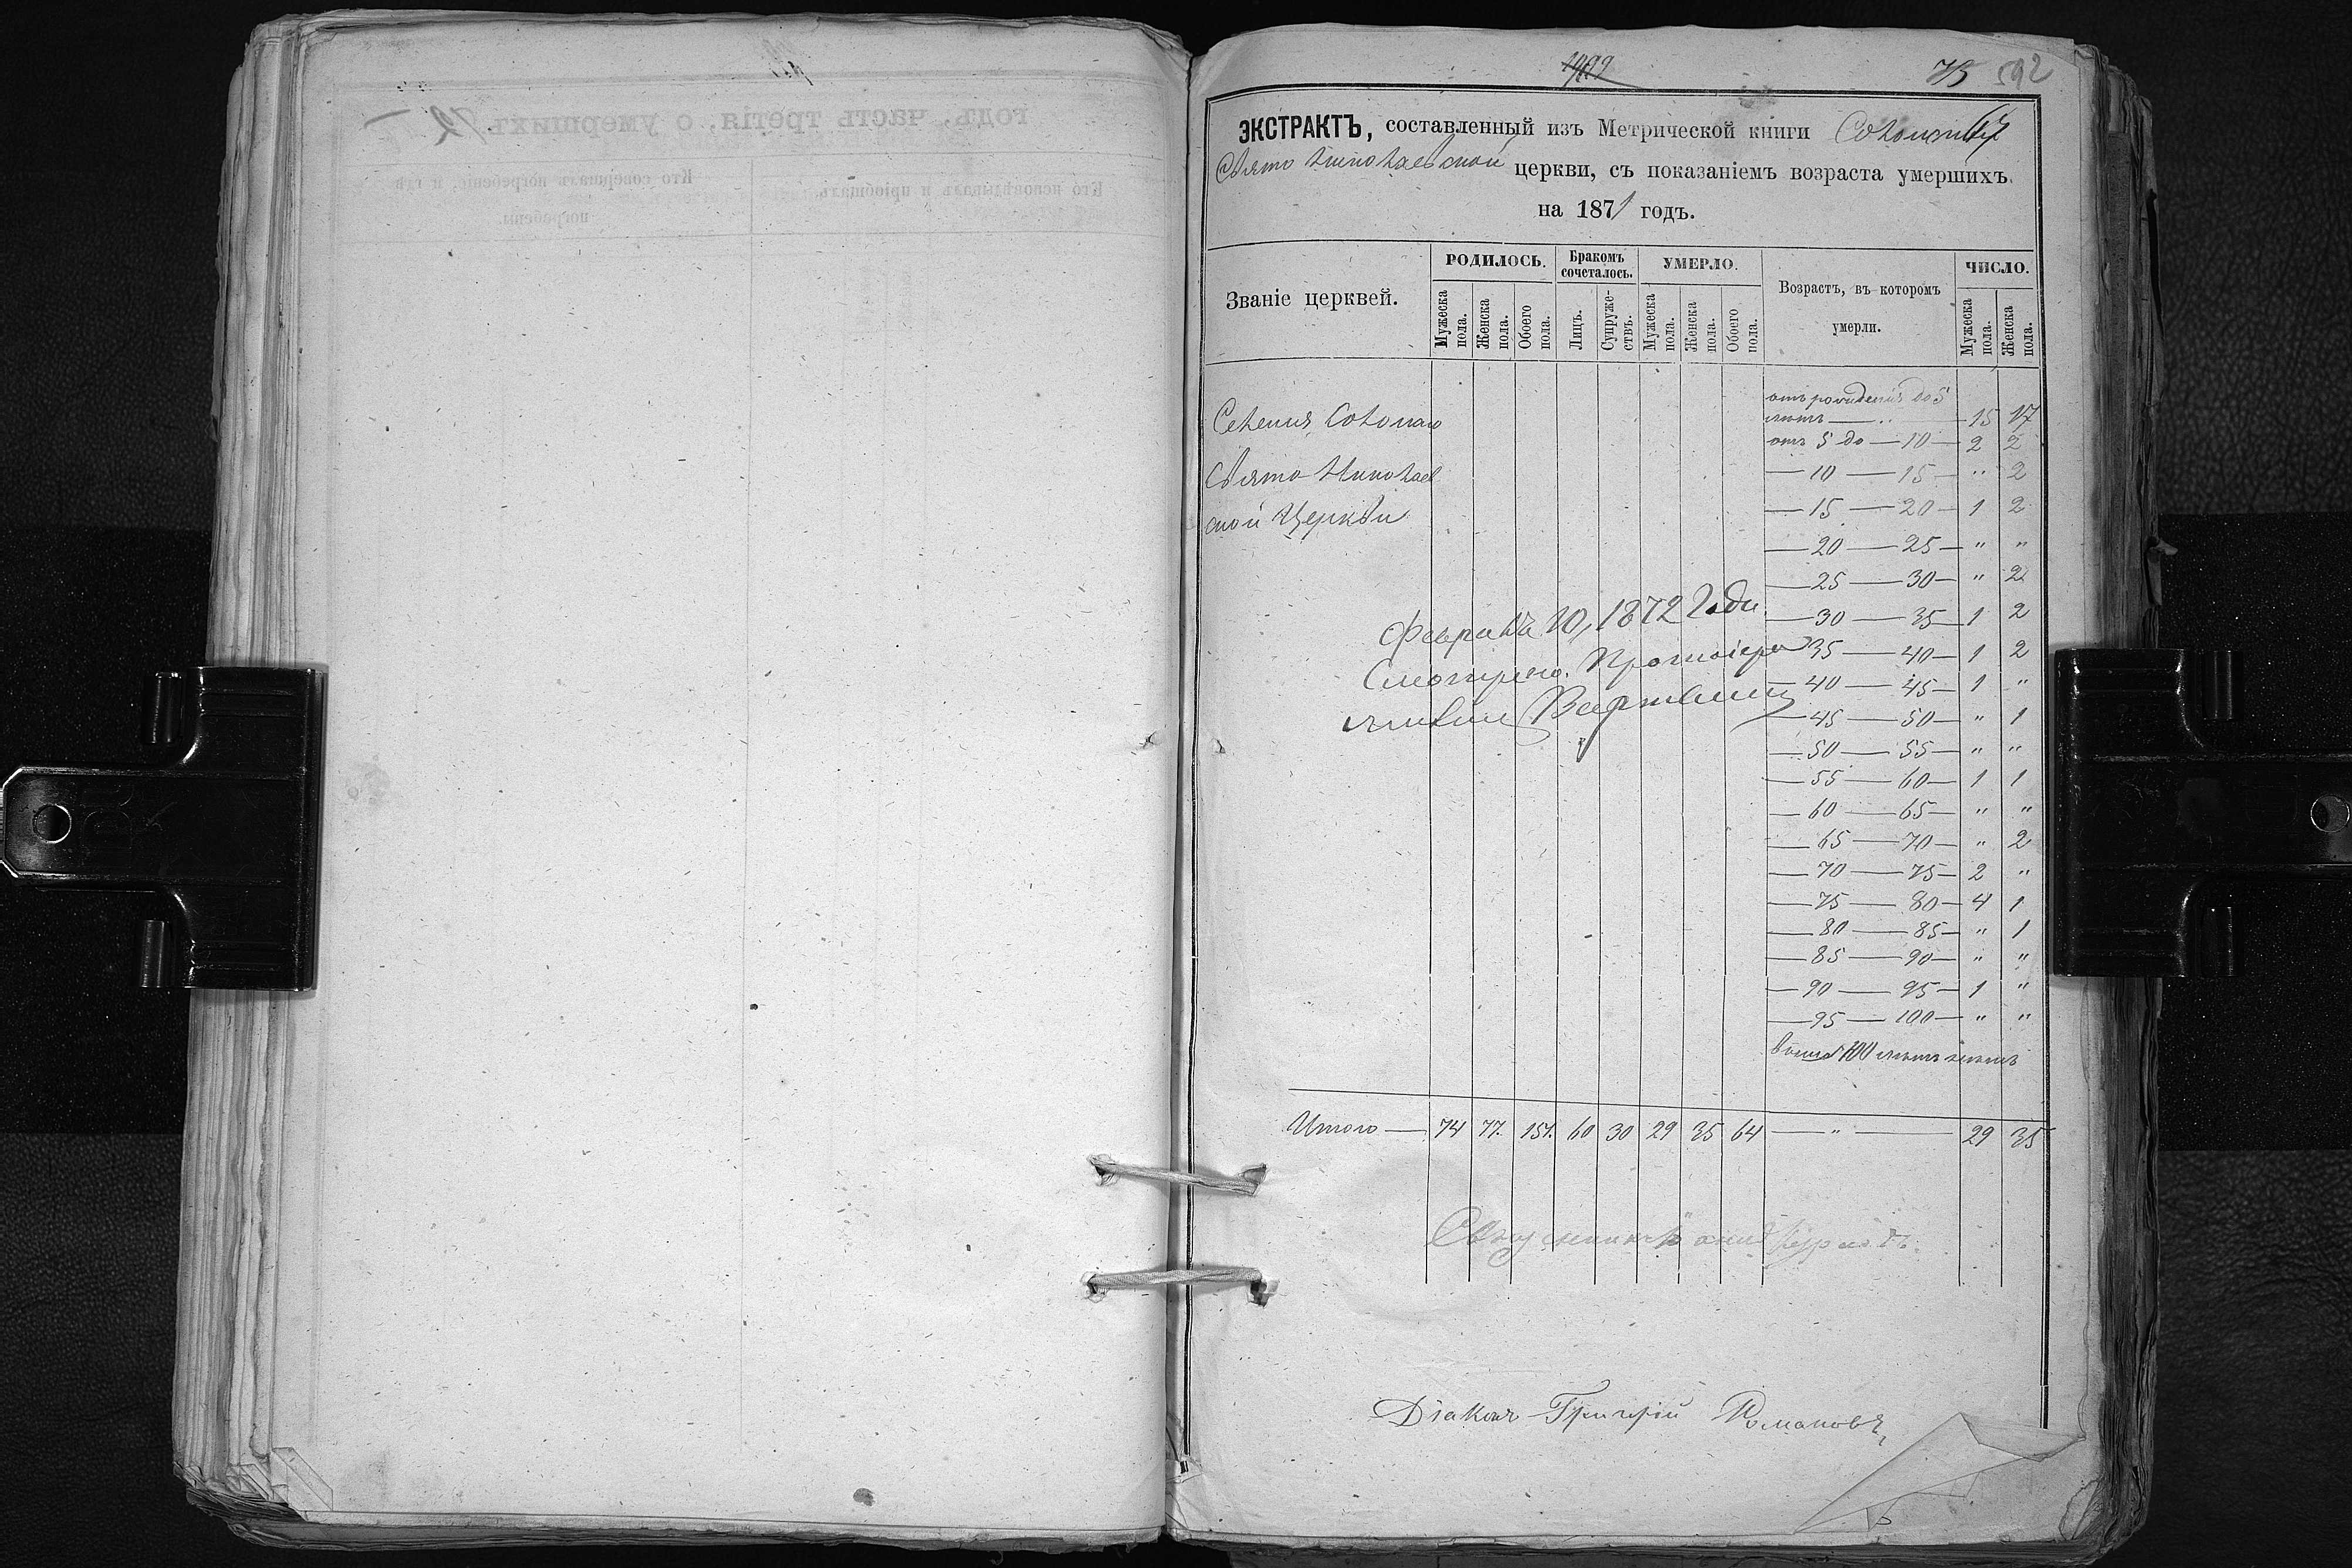 75 592
ЭКСТРАКТЪ, составленный изъ Метрической книги
Свято Николаевской церкви, съ показаніемъ возраста умершихъ
на 1871 годъ.
Званіе церквей.
РОДИЛОСЬ.
Мужеска пола.
Женска пола.
Обоего пола.
Бракомъ сочеталось.
Лицъ.
Супружествъ.
УМЕРЛО.
Мужеска пола.
Женска пола.
Обоего пола.
Возрастъ, въ которомъ
умерли.
ЧИСЛО.
Мужеска пола.
Женска пола.
Селенія
Свято Николаев
ской Церкви
отъ рожденія до 5
лѣтъ — „ — 15 17
отъ 5 до — 10 — 2 2
— 10 — 15 — „ 2
— 15 — 20 — 1 2
— 20 — 25 — „ „
— 25 — 30 — „ 2
— 30 — 35 — 1 2
— 35 — 40 — 1 2
— 40 — 45 — 1 „
— 45 — 50 — „ 1
— 50 — 55 — „ „
— 55 — 60 — 1 1
— 60 — 65 — „ „
— 65 — 70 — „ 2
— 70 — 75 — 2 „
— 75 — 80 — 4 1
— 80 — 85 — „ 1
— 85 — 90 — „ „
— 90 — 95 — 1 „
— 95 — 100 — „ „
выше 100 лѣтъ нѣтъ
Февраля 10, 1872 Года.
Смотрено. Протоіерей
Итого — 74 77. 151. 60 30 29 35 64 — „ — 29 35
Діаконъ Григорій Романовъ,
годъ, часть третія, о умершихъ
Кто исповѣдывалъ и пріобщалъ.
Кто совершалъ погребеніе, и гдѣ
погребены.